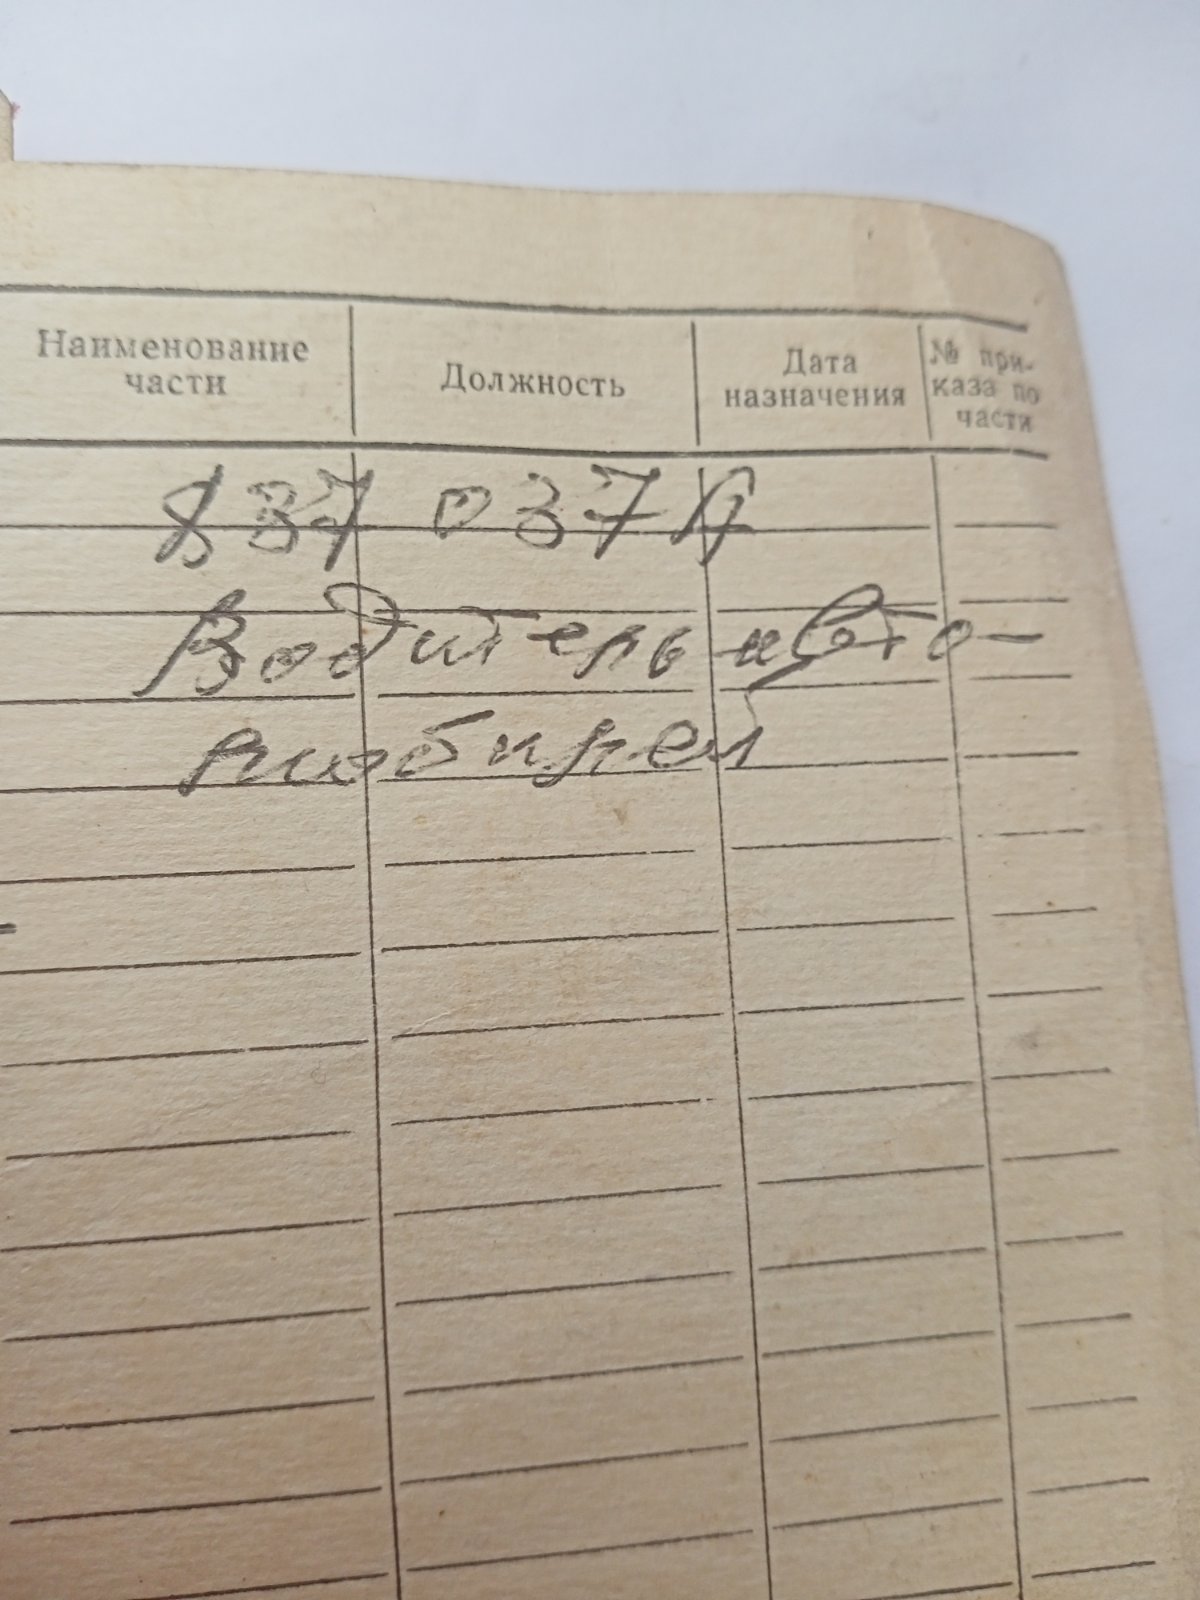 Наименование части
Должность
Дата назначения
№ при-каза по части
837 037А
Водитель авто-
мобилей